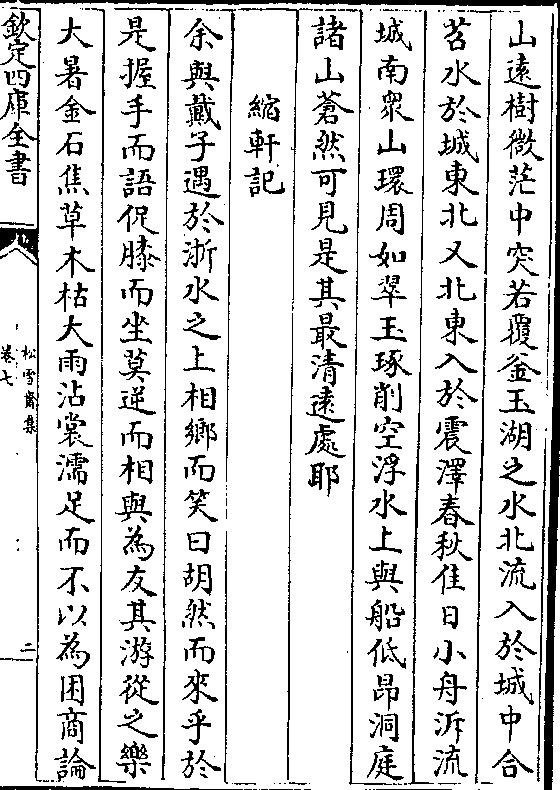 山遠樹微茫中突若覆釡玉湖之水北流入於城中合
苕水於城東北又北東入於震澤春秋佳日小舟泝流
城南衆山環周如翠玉琢削空浮水上與船低昂洞庭
諸山蒼然可見是其最清遠處耶
縮軒記
余與戴子遇於浙水之上相鄉而笑曰胡然而來乎於
是握手而語促膝而坐莫逆而相與為友其游從之樂
大暑金石焦草木枯大雨沾裳濡足而不以為困商論
欽定四庫全書
松雪齋集
卷七
二